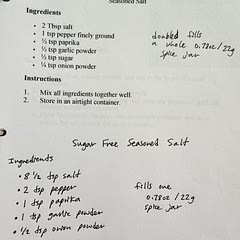 Seasoned Salt
Ingredients
• 2 Tbsp salt
• 1 tsp pepper finely ground
• ½ tsp paprika
• ½ tsp garlic powder
• ½ tsp sugar
• ¼ tsp onion powder
doubled fills
a whole 0.78oz / 22g
spice jar
Instructions
1. Mix all ingredients together well.
2. Store in an airtight container.
Sugar Free Seasoned Salt
Ingredients
• 8 ½ tsp salt
• 2 tsp pepper
• 1 tsp paprika
• 1 tsp garlic powder
• ½ tsp onion powder
fills one
0.78oz / 22g
spice jar